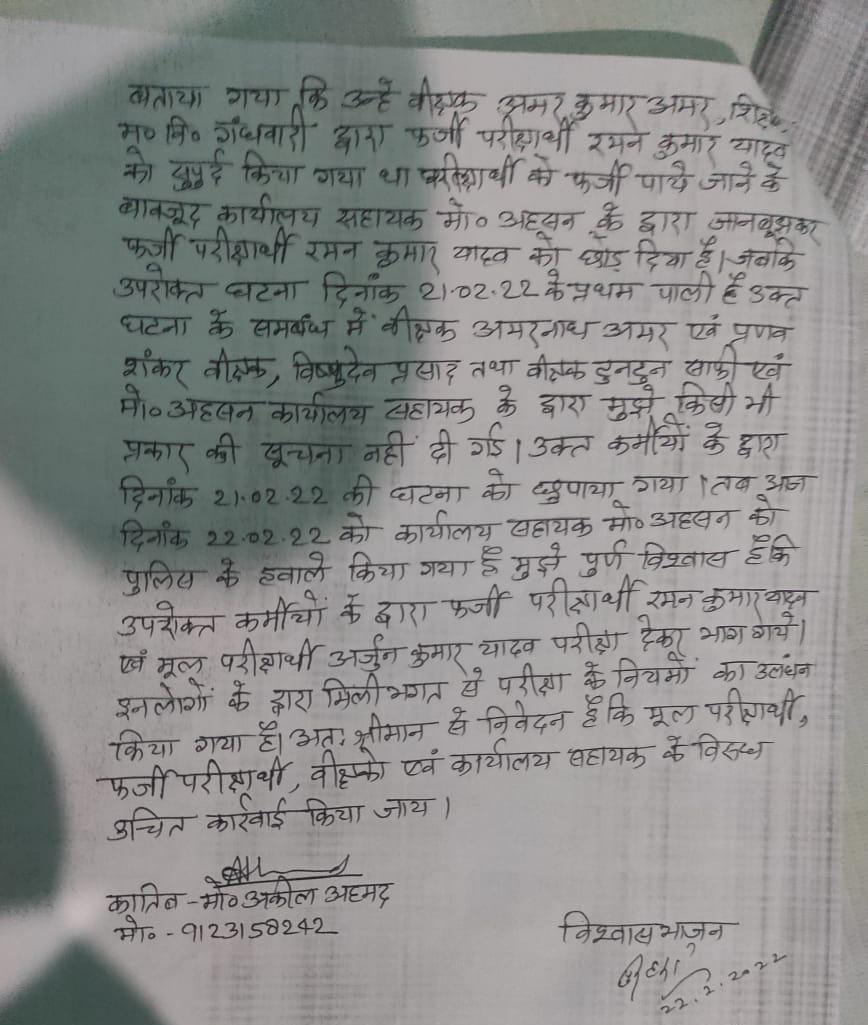 बताया गया कि उन्हे वीक्षक अमर कुमार अमर,
म० वि० गंधवारी द्वारा फर्जी परीक्षार्थी रमन कुमार यादव
को सुपुर्द किया गया था परीक्षार्थी को फर्जी पाये जाने के
बावजूद कार्यालय सहायक मो० अहसन के द्वारा जानबूझकर
फर्जी परीक्षार्थी रमन कुमार यादव को छोड़ दिया है। जबकि
उपरोक्त घटना दिनांक 21.02.22 के प्रथम पाली है उक्त
घटना के समबंध में वीक्षक अमरनाथ अमर एवं प्रणव
शंकर वीक्षक, विष्णुदेव प्रसाद तथा वीक्षक टुनटुन साफी एवं
मो० अहसन कार्यालय सहायक के द्वारा मुझे किसी भी
प्रकार की सूचना नहीं दी गई। उक्त कर्मीयों के द्वारा
दिनांक 21.02.22 की घटना को छुपाया गया। तब आज
दिनांक 22.02.22 को कार्यालय सहायक मो० अहसन को
पुलिस के हवाले किया गया है मुझे पुर्ण विश्वास है कि
उपरोक्त कर्मीयों के द्वारा फर्जी परीक्षार्थी रमन कुमार यादव
एवं मूल परीक्षार्थी अर्जुन कुमार यादव परीक्षा देकर भाग गये।
इनलोगों के द्वारा मिलीभगत से परीक्षा के नियमों का उलंघन
किया गया है। अतः श्रीमान से निवेदन है कि मूल परीक्षार्थी,
फर्जी परीक्षार्थी, वीक्षको एवं कार्यालय सहायक के विरूध
उचित कार्रवाई किया जाय।
कातिब - मो० अकील अहमद
मो० - 9123158242
विश्वासभाजन
22.2.2022